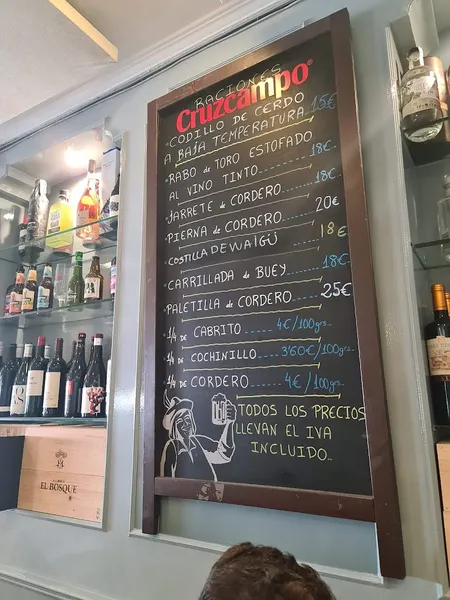 RACIONES
Cruzcampo
CODILLO DE CERDO
A BAJA TEMPERATURA 15€
RABO de TORO ESTOFADO
AL VINO TINTO........ 18€
JARRETE de CORDERO... 18€
PIERNA de CORDERO.... 20€
COSTILLA DE WAIGÜ 18€
CARRILLADA de BUEY... 18€
PALETILLA de CORDERO.... 25€
1/4 DE CABRITO ..... 4€/100grs
1/4 DE COCHINILLO ... 3'60€/100grs
1/4 DE CORDERO ....... 4€/100grs
TODOS LOS PRECIOS
LLEVAN EL IVA
INCLUIDO..
EL BOSQUE